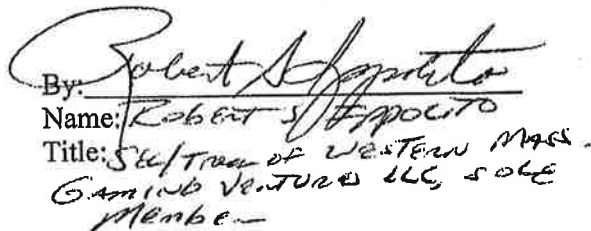 By: Robert S Ippolito
Name: ROBERT S IPPOLITO
Title: SEC/TREAS OF WESTERN MASS.
GAMING VENTURES LLC, SOLE
Member